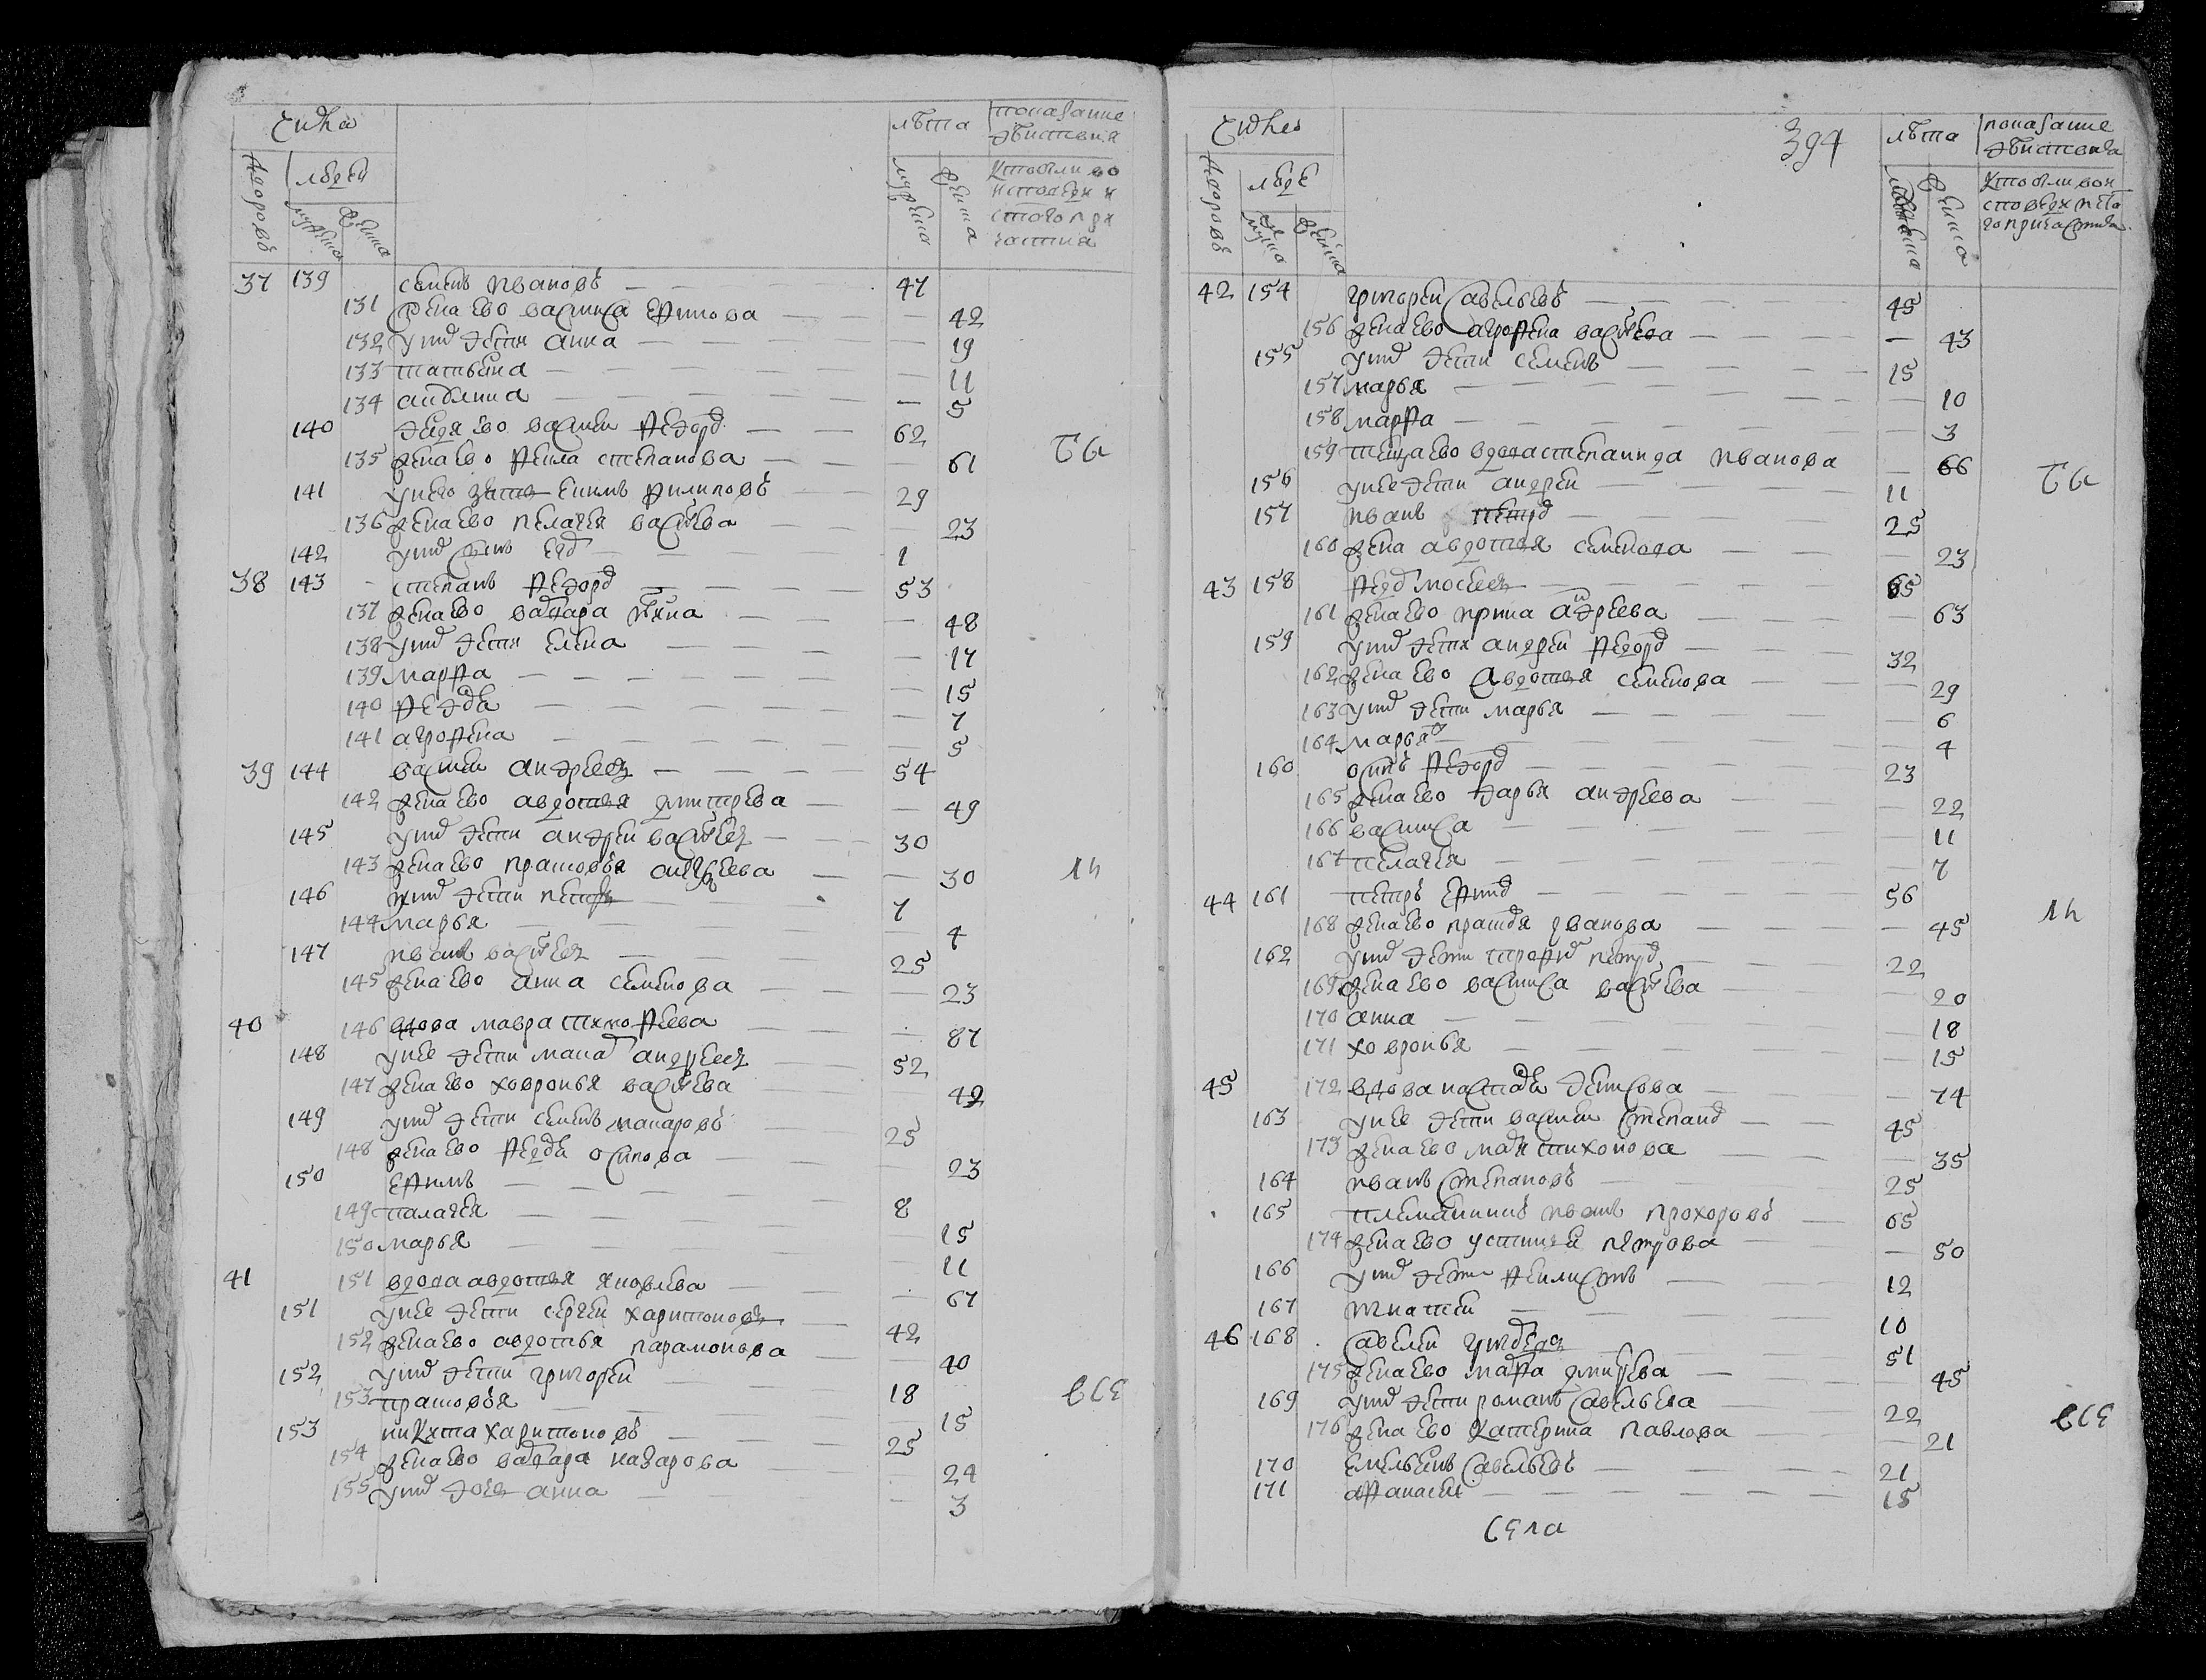 Число
дворовъ
людей
мужеска
женска
лѣта
мужеска
женска
показание
действия
кто были во
исповеди и
стого при
частия
37 139 Семенъ Ивановъ 47
131 жена ево Василиса Ефимова 42
132 у них дети Анна 19
133 Татьяна 11
134 Авдотья 5
140 дядя ево Василеи Федоров 62
135 жена ево Фекла Степанова 61
141 у него зять Екимъ Филиповъ 29
136 жена ево Пелагея Васильева 23
142 у них сынъ Егор 1
38 143 Степанъ Федоров 53
137 жена ево Варвара 48
138 у них дети Елена 17
139 Марфа 15
140 Федосья 7
141 Агрофена 5
39 144 Василеи Андреев 54
142 жена ево Авдотья Дмитрева 49
145 у них дети Андреи Васильев 30
143 жена ево Прасковья Андреева 30
146 у них дети Петръ 7
144 Марья 4
147 Иванъ Васильев 25
145 жена ево Анна Семенова 23
40 146 вдова Мавра Тимофеева 87
148 у нее дети Макар Андреев 52
147 жена ево Ховронья Васильева 42
149 у них дети Семенъ Макаровъ 25
148 жена ево Федосья Осипова 23
150 Ефимъ 8
149 Палагея 15
150 Марья 11
41 151 вдова Авдотья Яковлева 67
151 у нее дети Сергеи Харитоновъ 42
152 жена ево Авдотья Парамонова 40
152 у них дети Григореи 18
153 Прасковья 15
153 Никита Харитоновъ 25
154 жена ево Варвара Назарова 24
155 у них дочь Анна 3
бы
ли
все
394
Число
дворовъ
люде
мужеска
женска
лѣта
мужеска
женска
показание
действия
кто были во и
споведи и сто
го причастия
42 154 Григореи Савельевъ 45
156 жена ево Агрофена Васильева 43
155 у них дети Семенъ 15
157 Марья 10
158 Марфа 3
159 теща ево вдова Степанида Иванова 66
156 у нее дети Андреи 11
157 Иванъ Петров 25
160 жена Авдотья Семенова 23
43 158 Федор Мосеев 65
161 жена ево Ирина Андреева 63
159 у них дети Андреи Федоров 32
162 жена ево Авдотья Семенова 29
163 у них дети Марья 6
164 Марья 4
160 Осипъ Федоров 23
165 жена ево Дарья Андреева 22
166 Василиса 11
167 Пелагея 7
44 161 Петръ Ефимов 56
168 жена ево Прасковья Иванова 45
162 у них дети Трофим Петров 22
169 жена ево Василиса Васильева 20
170 Анна 18
171 Ховронья 15
45 172 вдова Настасья Денисова 74
163 у нее дети Василеи Степанов 45
173 жена ево Марья Тихонова 35
164 Иванъ Степановъ 25
165 племянникъ Иванъ Прохоровъ 65
174 жена ево Устинья Петрова 50
166 у них дети Феклистъ 12
167 Игнатеи 10
46 168 Савелеи Григорьев 51
175 жена ево Марфа Дмитрева 45
169 у них дети Романъ Савельева 22
176 жена ево Катерина Павлова 21
170 Емельянъ Савельевъ 21
171 Афанасеи 15
бы
ли
все
села